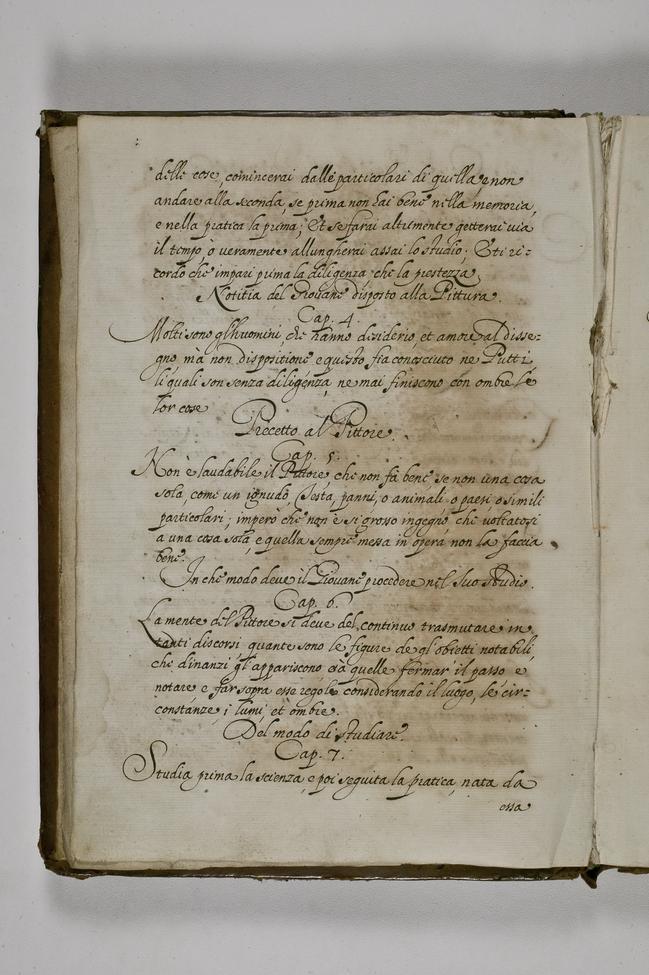 delle cose, comincerai dalle particolari di quella, e non
andare alla seconda, se prima non hai bene nella memoria,
e nella pratica la prima; Et se farai altrimente getterai via
il tempo, ò veramente allungherai assai lo studio; Et ti ri=
cordo che impari prima la diligenza che la prestezza,
Notitia del Giovane disposto alla Pittura.
Cap. 4
Molti sono gl'huomini, che hanno desiderio, et amore al Disse=
gno, mà non dispositione e questo fia conosciuto ne Putti
li quali son senza diligenza, ne mai finiscono con ombre le
lor cose
Precetto al Pittore.
Cap. 5.
Non è laudabile il Pittore, che non fà bene se non una cosa
sola, come un ignudo, Testa, panni, o animali, o paesi, o simili
particolari; imperò che non è si grosso ingegno, che voltatosi
a una cosa sola, e quella sempre messa in opera non la faccia
bene.
In che modo deve il Giovane procedere nel suo studio.
Cap. 6.
La mente del Pittore si deve del continuo trasmutare in
tanti discorsi quante sono le figure de gl'obietti notabili,
che dinanzi gl'appariscono et a quelle fermar' il passo e
notare e far sopra esse regole considerando il luogo, le cir=
constanze, i lumi, et ombre.
Del modo di studiare.
Cap. 7.
Studia prima la scienza, e poi seguita la pratica, nata da
essa